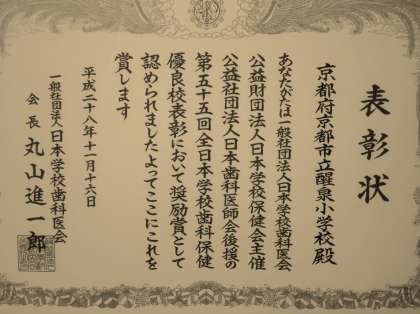 表彰状
京都府京都市立醒泉小学校殿
あなたがたは一般社団法人日本学校歯科医会
公益財団法人日本学校保健会主催
公益社団法人日本歯科医師会後援の
第五十五回全日本学校歯科保健
優良校表彰において奨励賞として
認められましたよってここにこれを
賞します
平成二十八年十一月十六日
一般社団法人日本学校歯科医会
会長丸山進一郎